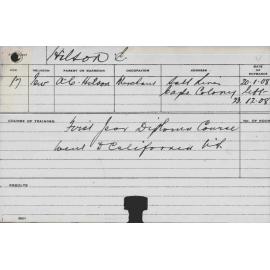 Hilson C
AGE RELIGION PARENT OR GUARDIAN OCCUPATION ADDRESS DATE OF ENTRANCE
17 A.C. Hilson Merchant 20-1-08
Cape Colony left
12.08
COURSE OF TRAINING
First Year Diploma Course
went to California
RESULTS